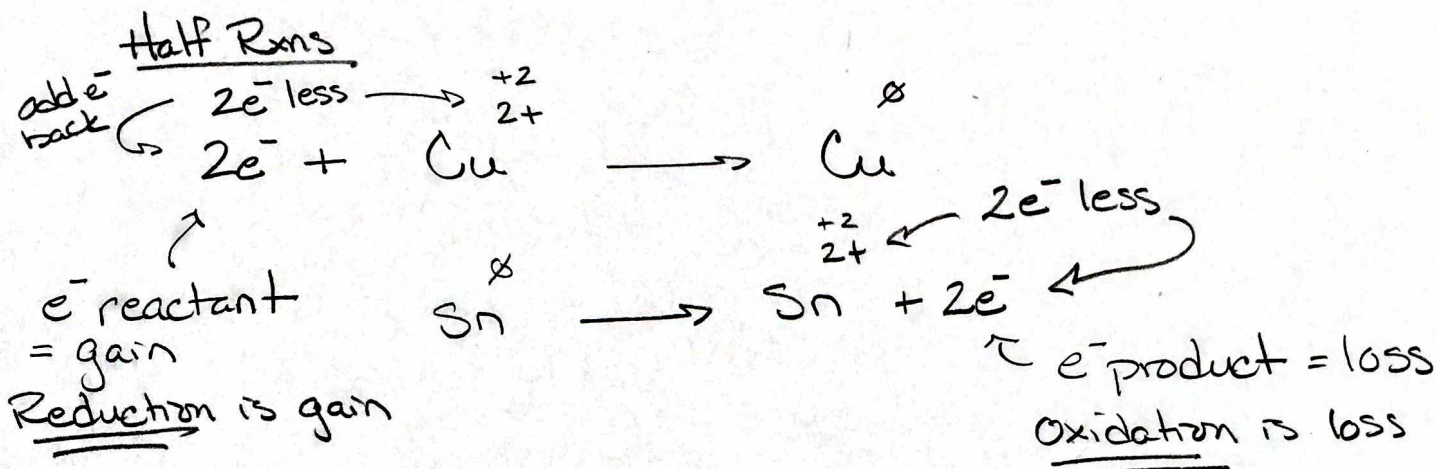 Half Rxns
add e⁻ back
2e⁻ less → +2
2+
2e⁻ + Cu → Cu ∅
2e⁻ less
+2
2+
e⁻ reactant
= gain
Reduction is gain
Sn ∅ → Sn + 2e⁻
e⁻ product = loss
Oxidation is loss